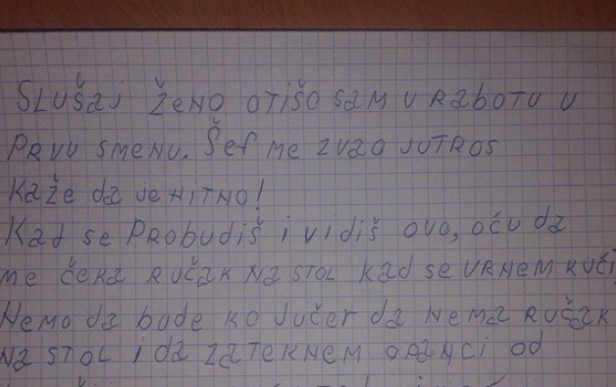 SLUŠAJ ŽENO OTIŠO SAM U RABOTU U
PRVU SMENU. ŠEF ME ZVAO JUTROS
KAŽE DA JE HITNO!
KAD SE PROBUDIŠ I VIDIŠ OVO, OĆU DA
ME ČEKA RUČAK NA STOL KAD SE VRNEM KUČI
NEMO DA BUDE KO JUČER DA NEMA RUČAK
NA STOL I DA ZATEKNEM OPANCI OD